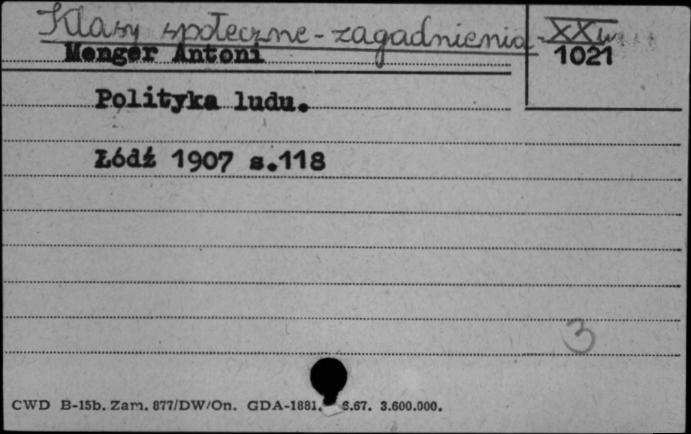 Klasy społeczne - zagadnienia - XXw.
Menger Antoni
1021
Polityka ludu.
Łódź 1907 s.118
3
CWD B-15b. Zam. 877/DW/On. GDA-1881. 6.67. 3.600.000.